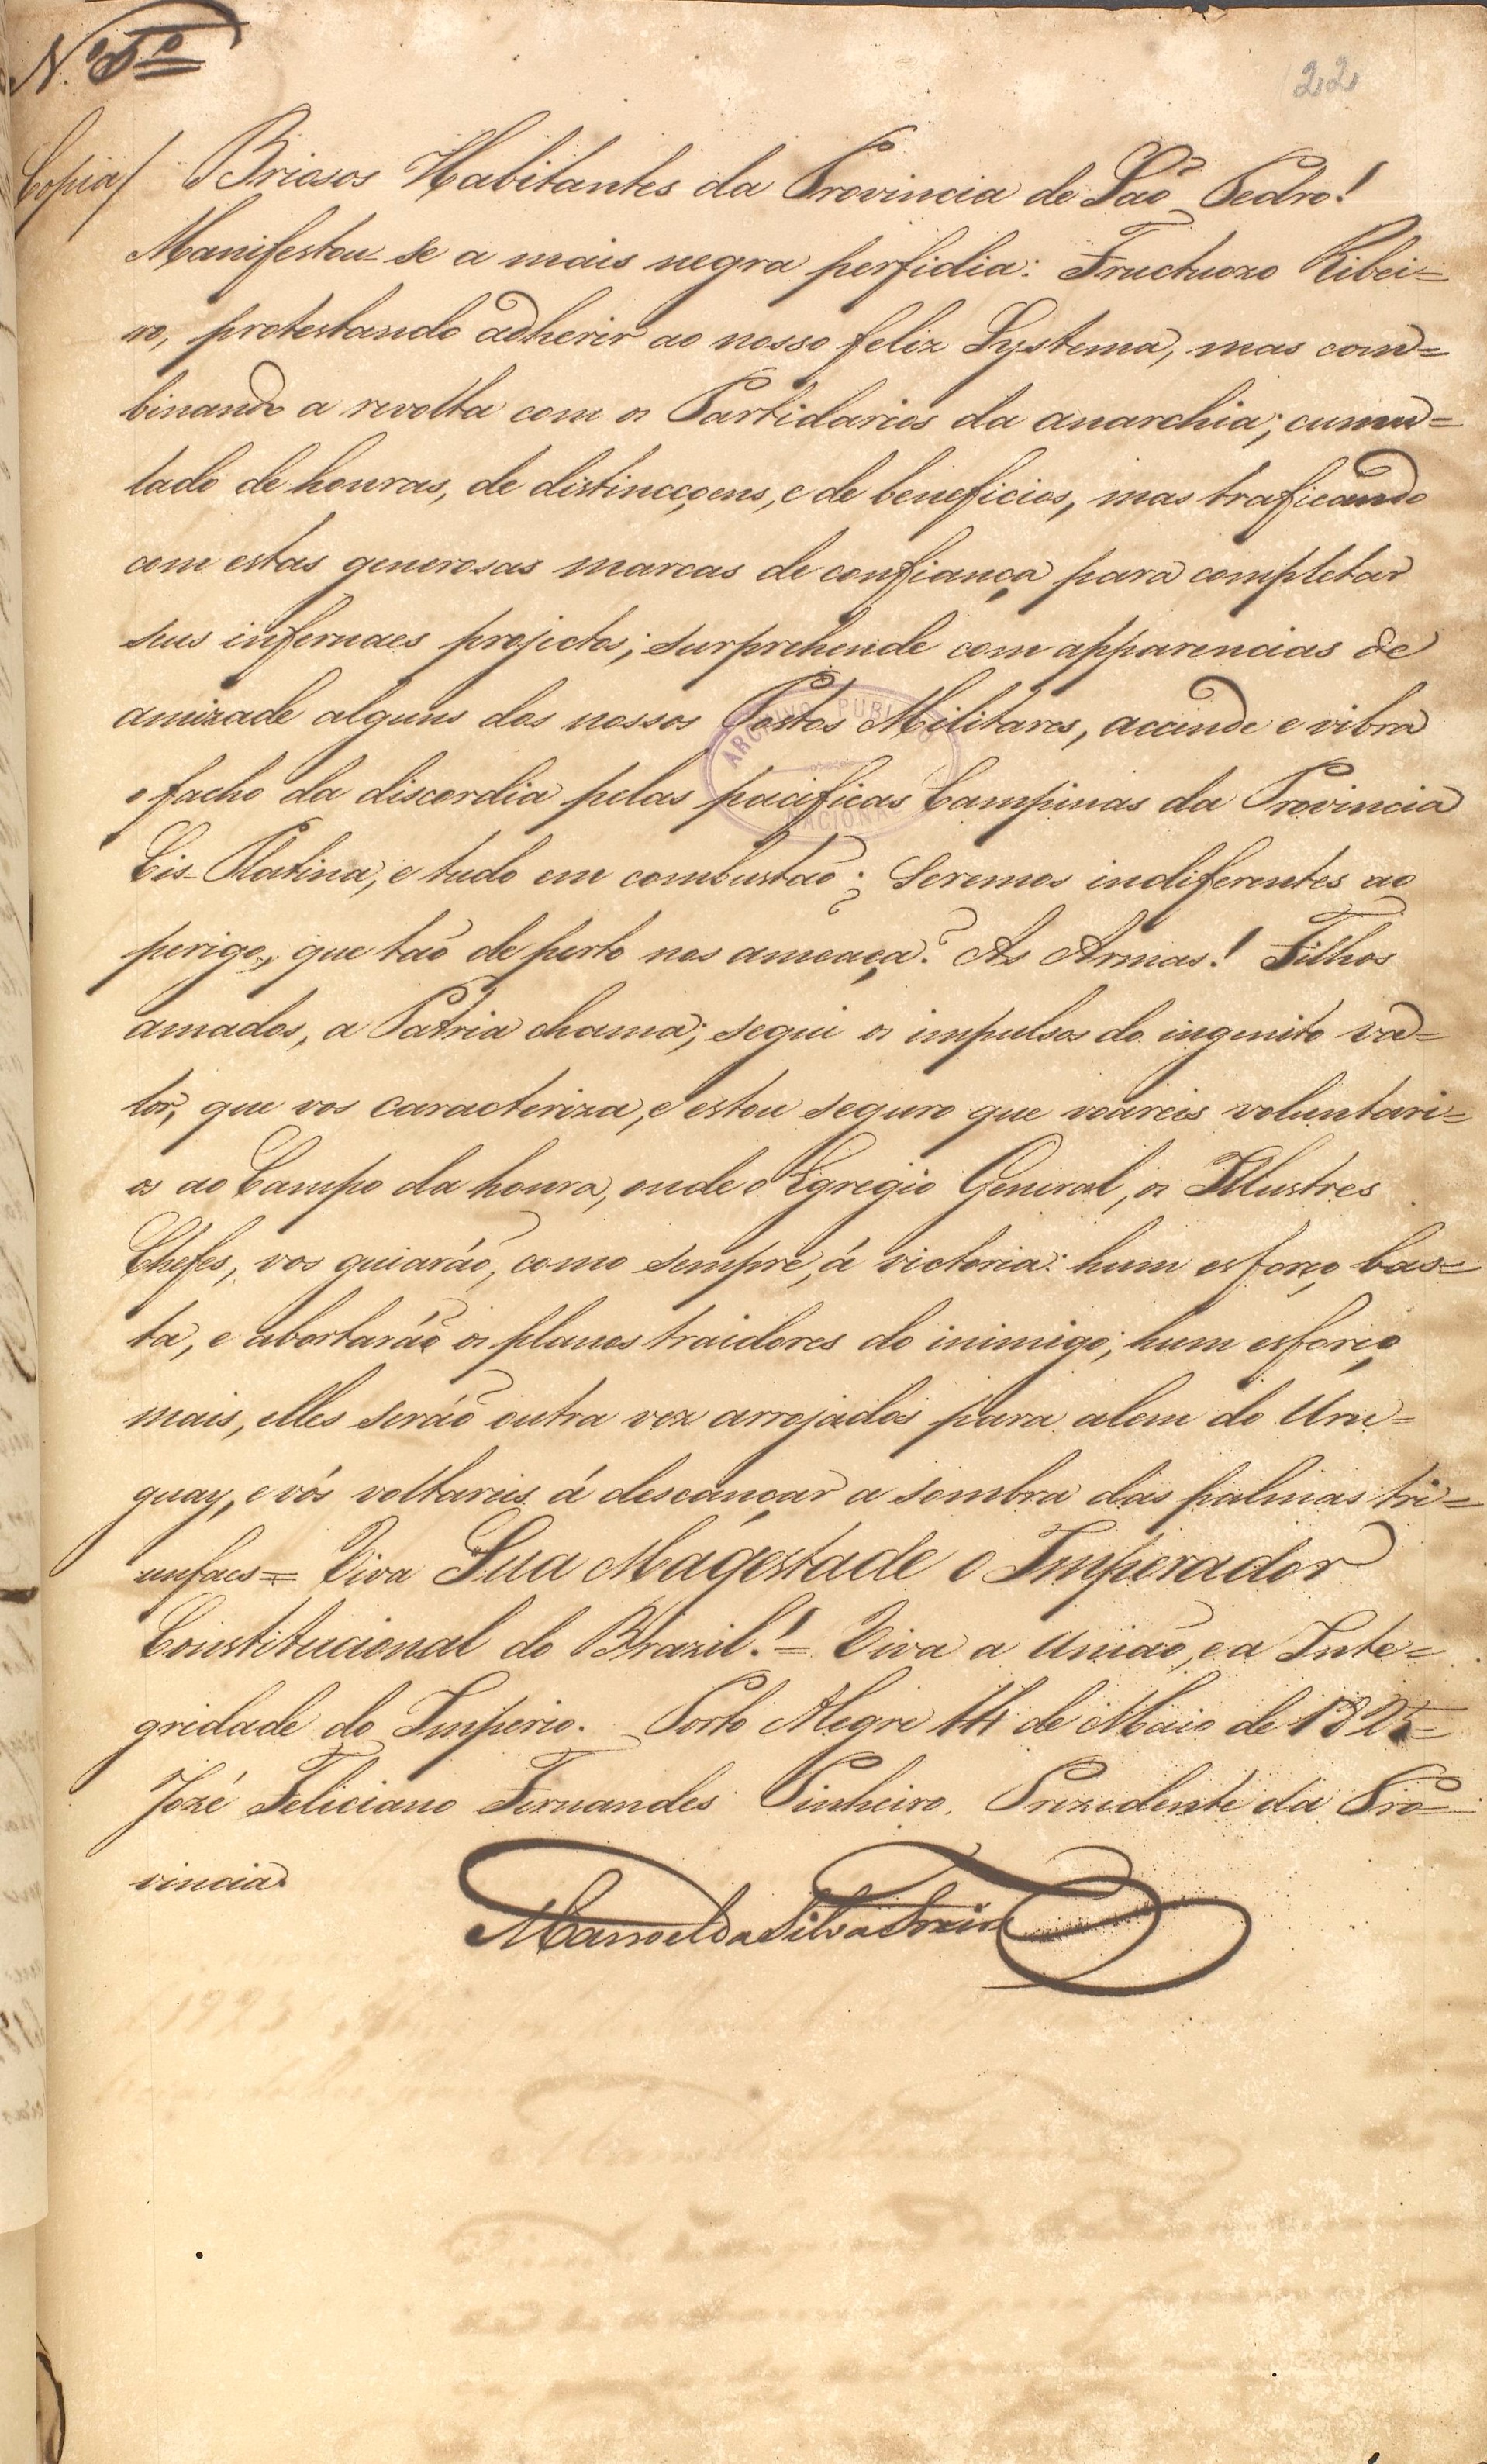 N.º 5º
22
Copia/ Briosos Habitantes da Provincia de São Pedro!
Manifestou-se a mais negra perfidia: Fructuozo Ribei=
ro, protestando adherir ao nosso feliz Systema, mas com=
binando a revolta com os Partidarios da anarchia; cumu=
lado de honras, de distincçoens, e de beneficios, mas traficando
com estas generosas marcas de confiança para completar
seus infernaes projectos; surprehende com apparencias de
amizade alguns dos nossos Postos Militares, accende e vibra
o facho da discordia pelas pacificas Campinas da Provincia
Cis-Platina, e tudo em combustão: ¿ Seremos indiferentes ao
perigo, que tão de perto nos ameaça? As Armas! Filhos
amados, a Patria chama; segui os impulsos do ingenito va=
lor, que vos caracteriza, e estou seguro que voareis voluntari=
os ao Campo da honra, onde o Egregio General, os Illustres
Chefes, vos guiarão, como sempre, á victoria: hum esforço bas=
ta, e abortarão os planos traidores do inimigo; hum esforço
mais, elles serão outra vez arrojados para alem do Uru=
guay, e vós voltareis á descançar a sombra das palmas tri=
unfaes= Viva Sua Magestade o Imperador
Constitucional do Brazil!= Viva a União, e a Inte=
gridade do Imperio. Porto Alegre 14 de Maio de 1825=
Jozé Feliciano Fernandes Pinheiro. Prezidente da Pro=
vincia.
Manoel da Silva Freire
ARCHIVO PUBLICO
NACIONAL